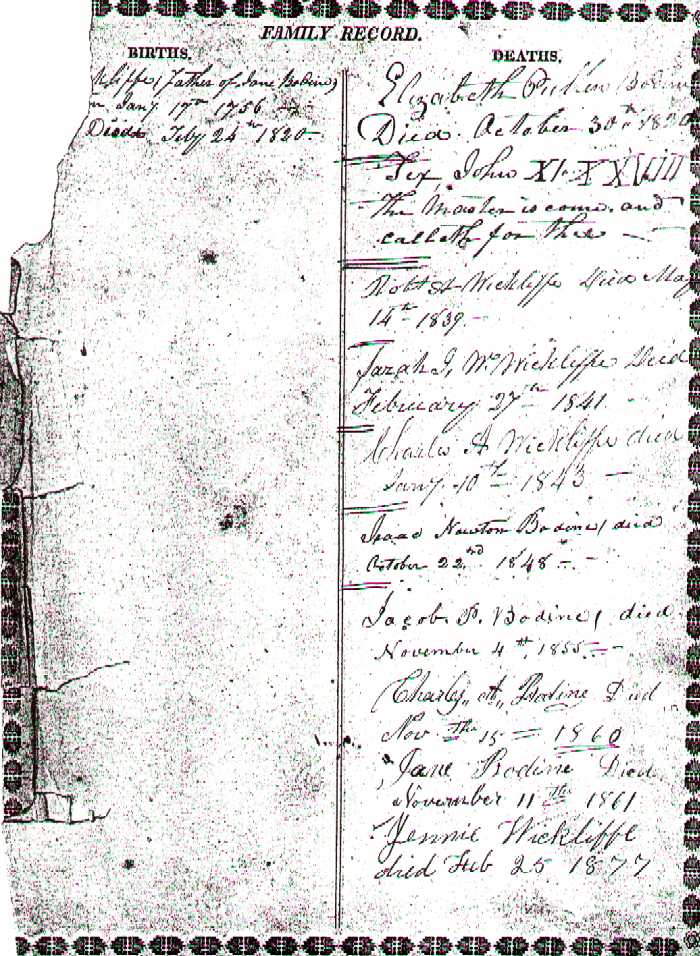 FAMILY RECORD.
BIRTHS.
kliffe (Father of Jane Bodine)
n Jany 17th 1756
Died Feby 24th 1820
DEATHS.
Elizabeth Bodine
Died October 30th 1820
Tex John XI. XXVIII
The Master is come and
calleth for thee
Robt A Wickliffe Died May
14th 1839
Sarah J, W. Wickliffe Died
February 27th 1841
Charles A Wickliffe died
Jany 10th 1843
Isaac Newton Bodine, died
October 22nd 1848
Jacob. P. Bodine, died
November 4th 1855
Charles A. Bodine Died
Nov 15th 1860
Jane Bodine Died
November 11th 1861
Jennie Wickliffe
died Feb 25 1877